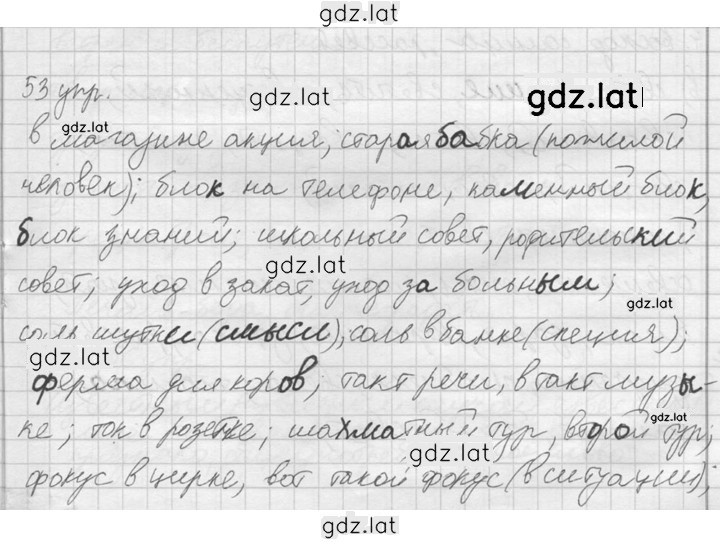 gdz.lat
53 упр.
gdz.lat
gdz.lat
в магазине акция, старая бабка (пожилой
человек); блок на телефоне, каменный блок,
блок знаний; школьный совет, родительский
gdz.lat
совет; уход в закат, уход за больным;
gdz.lat
соль шутки (смысл), соль в банке (специя);
gdz.lat
ферма для коров; такт речи, в такт музы-
gdz.lat
ке; ток в розетке; шахматный тур, второй тур;
gdz.lat
фокус в цирке, вот такой фокус (в ситуации),
gdz.lat